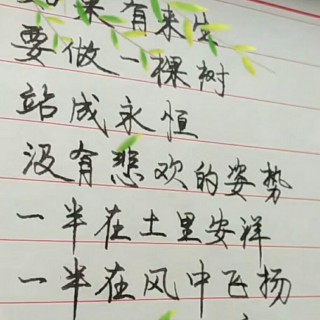 如果有来生
要做一棵树
站成永恒
没有悲欢的姿势
一半在土里安祥
一半在风中飞扬